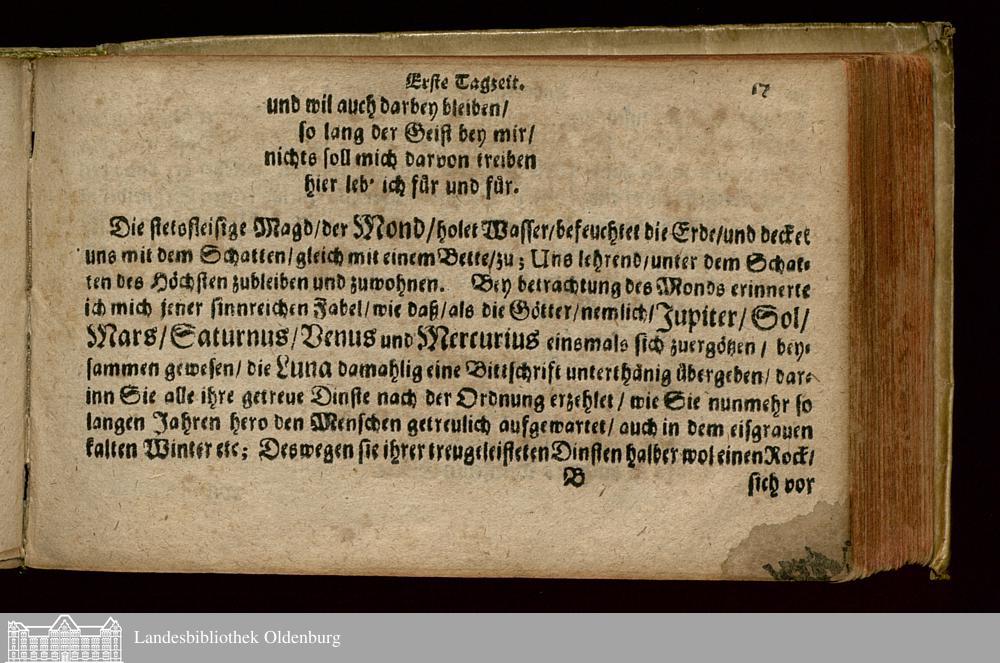 Erste Tagzeit. 17
und wil auch darbey bleiben/
so lang der Geist bey mir/
nichts soll mich darvon treiben
hier leb' ich für und für.
Die stetsfleisige Magd/der Mond/holet Wasser/befeuchtet die Erde/und decket
uns mit dem Schatten/gleich mit einem Bette/zu; Uns lehrend/unter dem Schat-
ten des Höchsten zubleiben und zuwohnen. Bey betrachtung des Monds erinnerte
ich mich jener sinnreichen Fabel/wie daß/als die Götter/nemlich/Jupiter/Sol/
Mars/Saturnus/Venus und Mercurius einsmals sich zuergötzen/ bey-
sammen gewesen/ die Luna damahlig eine Bittschrift unterthänig übergeben/ dar-
inn Sie alle ihre getreue Dinste nach der Ordnung erzehlet/ wie Sie nunmehr so
langen Jahren hero den Menschen getreulich aufgewartet/ auch in dem eisgrauen
kalten Winter etc; Deswegen sie ihrer treugeleisteten Dinsten halber wol einen Rock/
B sich vor
Landesbibliothek Oldenburg